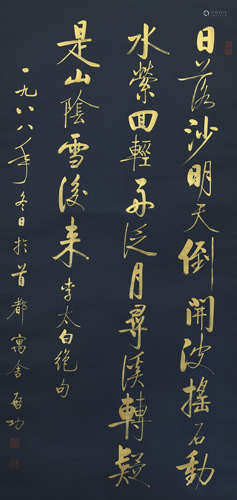 日落沙明天倒開波搖石動
水縈回輕舟泛月尋溪轉疑
是山陰雪後来 李太白絕句
一九八八年冬日於首都寓舍 啟功